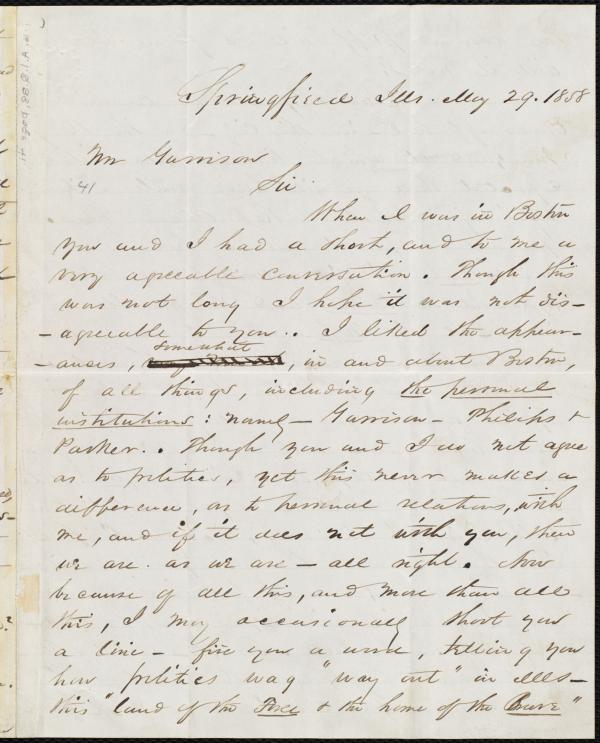 Springfield Ills. May 29. 1858
Mr Garrison
41
Sir
When I was in Boston
you and I had a short, and to me a
very agreeable conversation. Though this
was not long I hope it was not dis-
-agreeable to you.. I liked the appear-
somewhat
-ances, , in and about Boston,
of all things, including the personal
institutions: namely - Garrison - Philips &
Parker.. Though you and I do not agree
as to politics, yet this never makes a
difference, as to personal relations, with
me, and if it does not with you, then
we are as we are - all right. Now
because of all this, and more than all
this, I may occasionally shoot you
a line - fire you a word, telling you
how politics wag "way out" in Ills-
this "land of the Free & the home of the Brave"